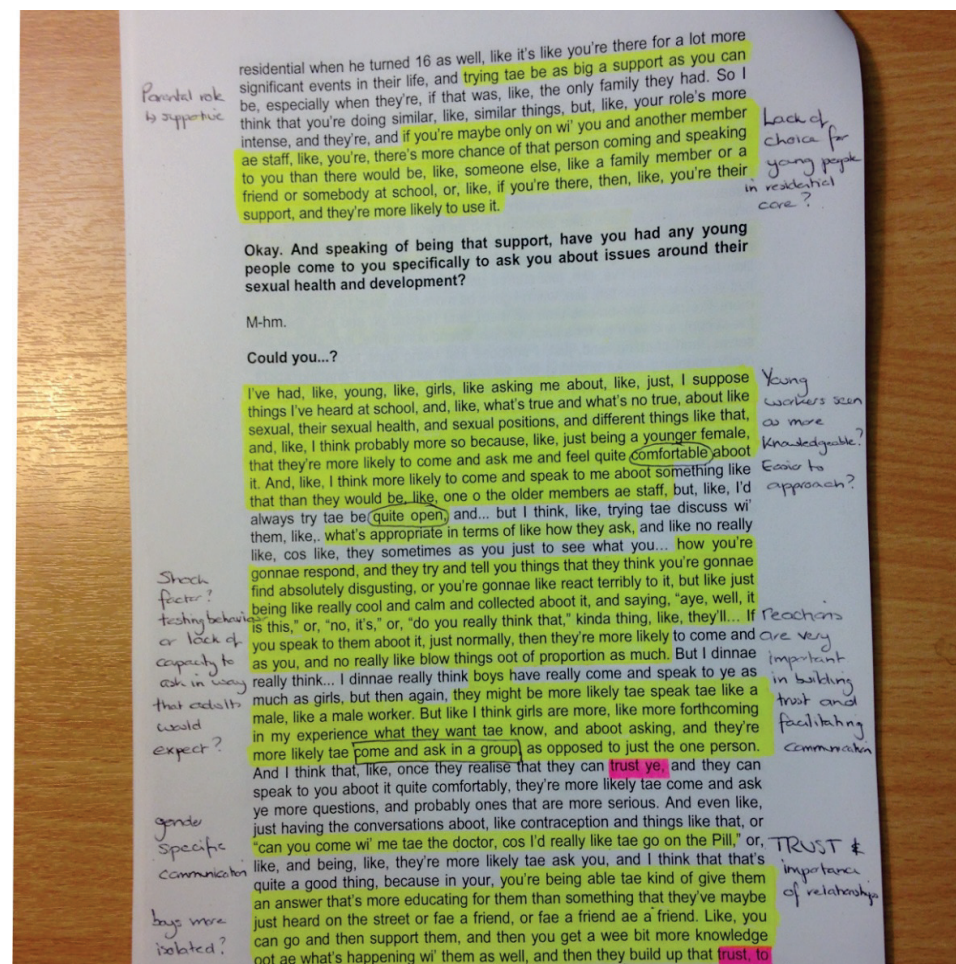 residential when he turned 16 as well, like it's like you're there for a lot more
significant events in their life, and trying tae be as big a support as you can
be, especially when they're, if that was, like, the only family they had. So I
think that you're doing similar, like, similar things, but, like, your role's more
intense, and they're, and if you're maybe only on wi' you and another member
ae staff, like, you're, there's more chance of that person coming and speaking
to you than there would be, like, someone else, like a family member or a
friend or somebody at school, or, like, if you're there, then, like, you're their
support, and they're more likely to use it.
Okay. And speaking of being that support, have you had any young
people come to you specifically to ask you about issues around their
sexual health and development?
M-hm.
Could you...?
I've had, like, young, like, girls, like asking me about, like, just, I suppose
things I've heard at school, and, like, what's true and what's no true, about like
sexual, their sexual health, and sexual positions, and different things like that,
and, like, I think probably more so because, like, just being a younger female,
that they're more likely to come and ask me and feel quite comfortable aboot
it. And, like, I think more likely to come and speak to me aboot something like
that than they would be, like, one o the older members ae staff, but, like, I'd
always try tae be quite open, and... but I think, like, trying tae discuss wi'
them, like,. what's appropriate in terms of like how they ask, and like no really
like, cos like, they sometimes as you just to see what you... how you're
gonnae respond, and they try and tell you things that they think you're gonnae
find absolutely disgusting, or you're gonnae like react terribly to it, but like just
being like really cool and calm and collected aboot it, and saying, "aye, well, it
is this," or, "no, it's," or, "do you really think that," kinda thing, like, they'll... If
you speak to them aboot it, just normally, then they're more likely to come and
as you, and no really like blow things oot of proportion as much. But I dinnae
really think... I dinnae really think boys have really come and speak to ye as
much as girls, but then again, they might be more likely tae speak tae like a
male, like a male worker. But like I think girls are more, like more forthcoming
in my experience what they want tae know, and aboot asking, and they're
more likely tae come and ask in a group, as opposed to just the one person.
And I think that, like, once they realise that they can trust ye, and they can
speak to you aboot it quite comfortably, they're more likely tae come and ask
ye more questions, and probably ones that are more serious. And even like,
just having the conversations aboot, like contraception and things like that, or
"can you come wi' me tae the doctor, cos I'd really like tae go on the Pill," or,
like, and being, like, they're more likely tae ask you, and I think that that's
quite a good thing, because in your, you're being able tae kind of give them
an answer that's more educating for them than something that they've maybe
just heard on the street or fae a friend, or fae a friend ae a friend. Like, you
can go and then support them, and then you get a wee bit more knowledge
oot ae what's happening wi' them as well, and then they build up that trust, to
Parental role
is supportive
Shock
factor?
testing behaviour
or lack of
capacity to
ask in way
that adults
would
expect?
gender
specific
communication
boys more
isolated?
Lack of
choice for
young people
in residential
care?
Young
workers seen
as more
knowledgeable?
Easier to
approach?
reactions
are very
important
in building
trust and
facilitating
communication
TRUST &
importance
of relationships